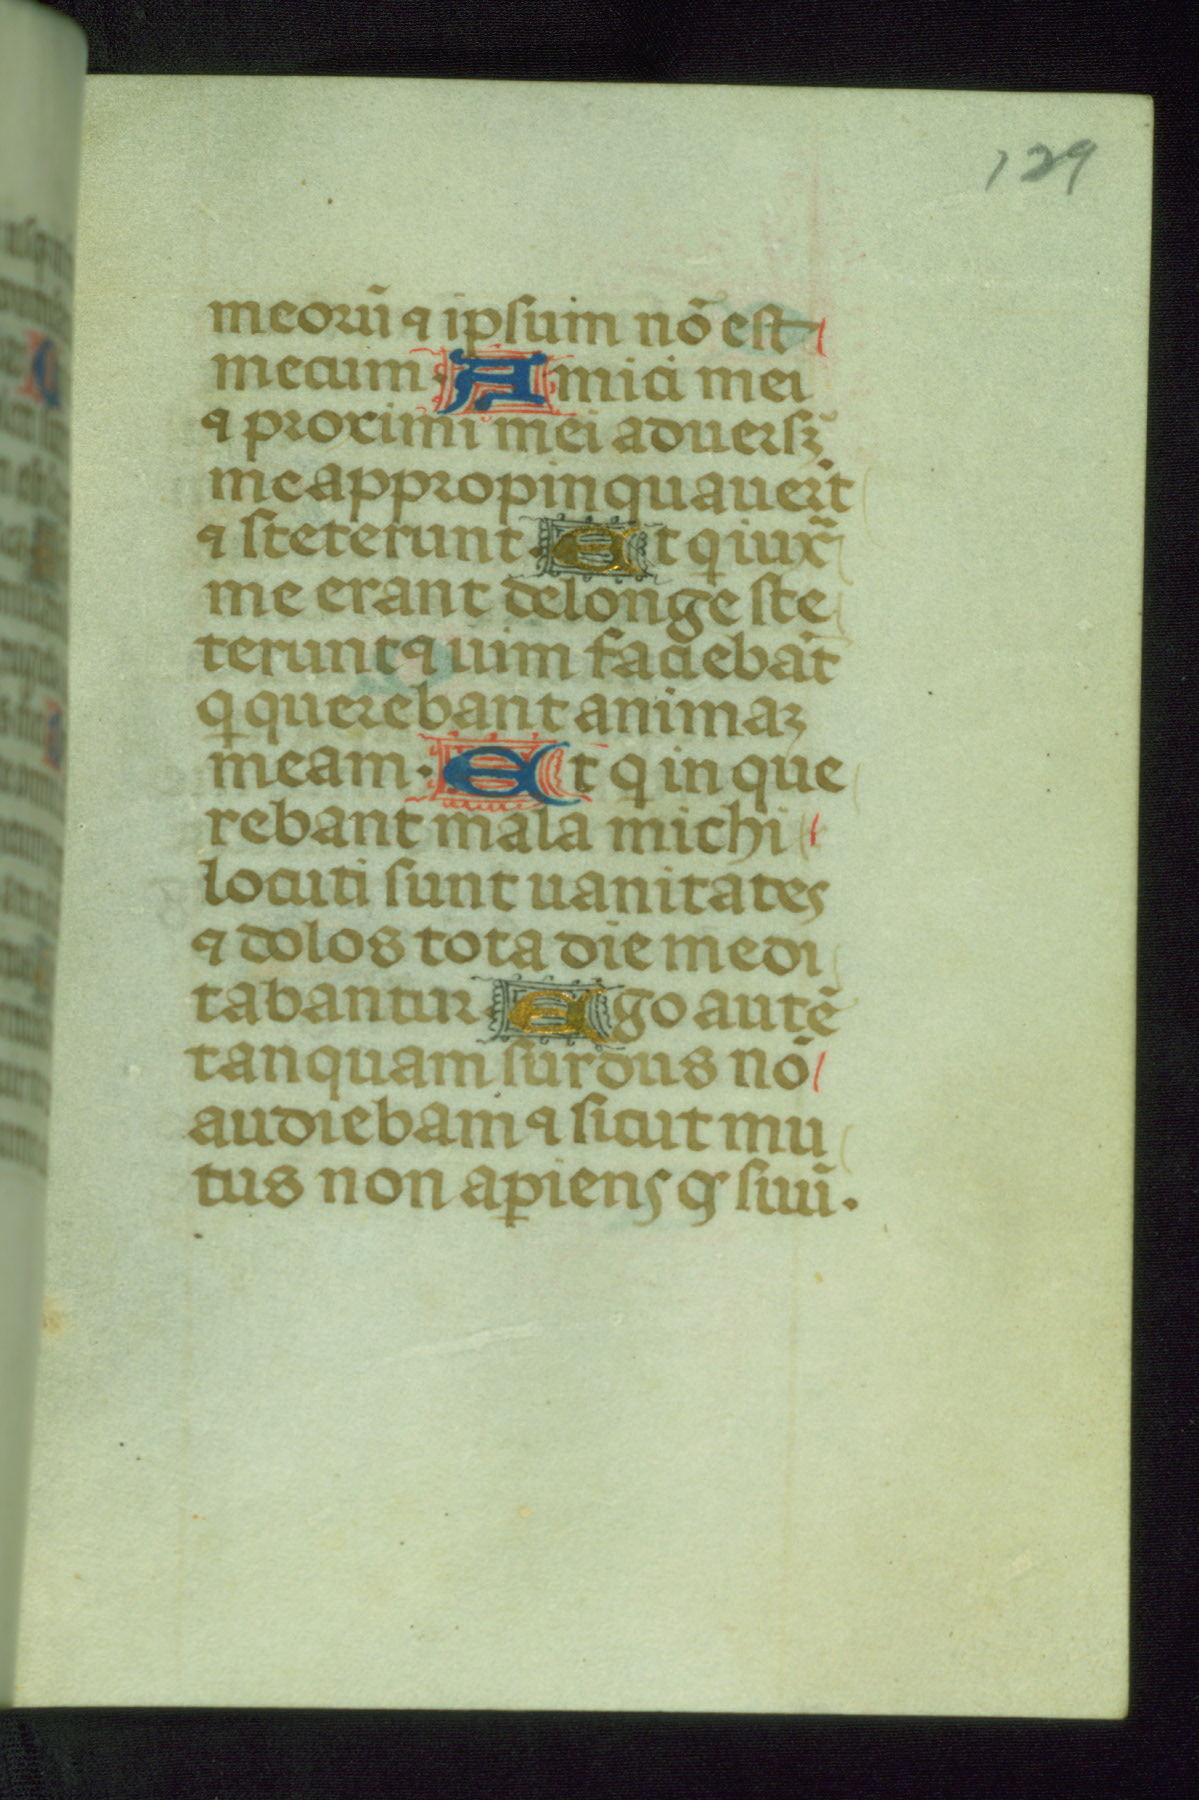 129
meorū ⁊ ipsum nō est
mecum. Amici mei
⁊ proximi mei aduersꝫ
me appropinquauer̄t
⁊ steterunt. Et q iuxᷓ
me erant de longe ste
terunt ⁊ uim faciebāt
q querebant animaꝫ
meam. Et q inque
rebant mala michi
locuti sunt uanitates
⁊ dolos tota die medi
tabantur. Ego autē
tanquam surdus nō
audiebam ⁊ sicut mu
tus non apiens suū.